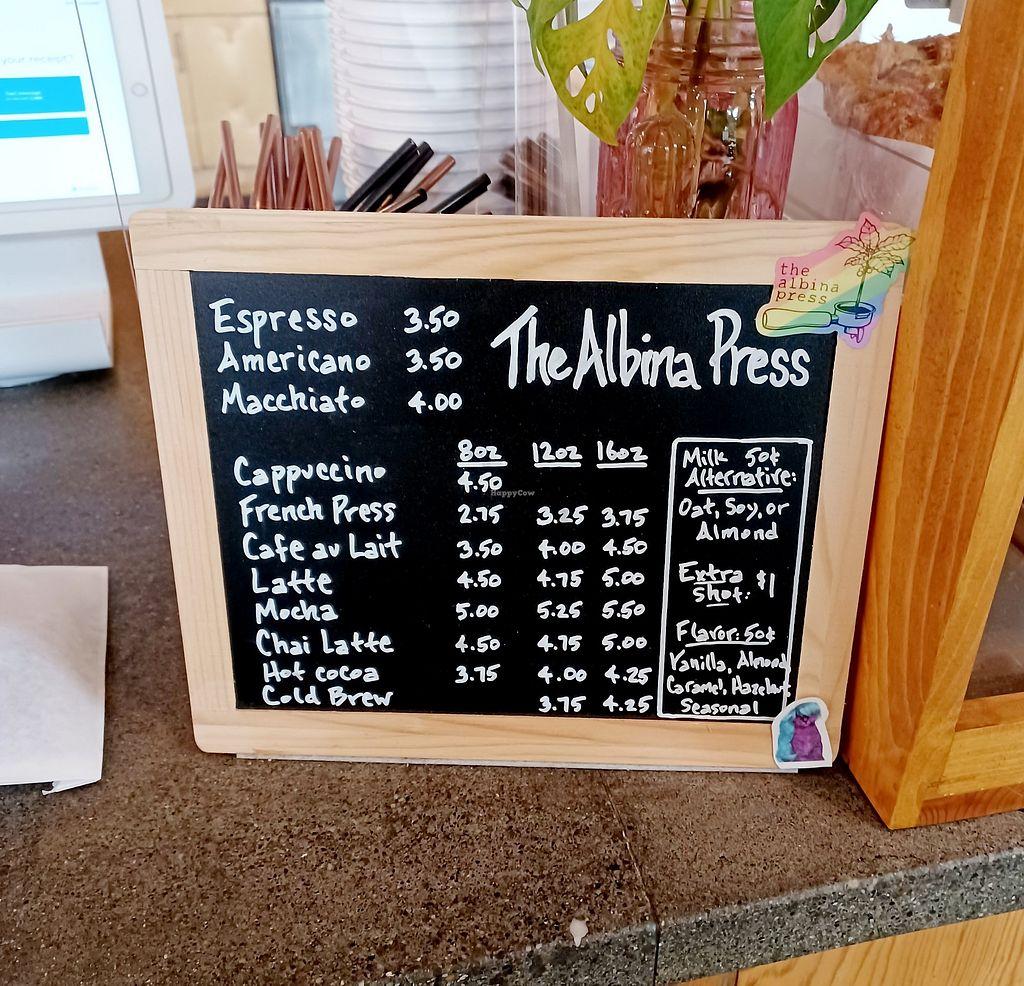 your receipt?
Espresso 3.50
Americano 3.50
Macchiato 4.00
The Albina Press
the
albina
press
8oz 12oz 16oz
Cappuccino 4.50
French Press 2.75 3.25 3.75
Cafe au Lait 3.50 4.00 4.50
Latte 4.50 4.75 5.00
Mocha 5.00 5.25 5.50
Chai Latte 4.50 4.75 5.00
Hot cocoa 3.75 4.00 4.25
Cold Brew 3.75 4.25
Milk 50¢
Alternative:
Oat, Soy, or
Almond
Extra
Shot: $1
Flavor: 50¢
Vanilla, Almond
Caramel, Hazelnut
Seasonal
HappyCow